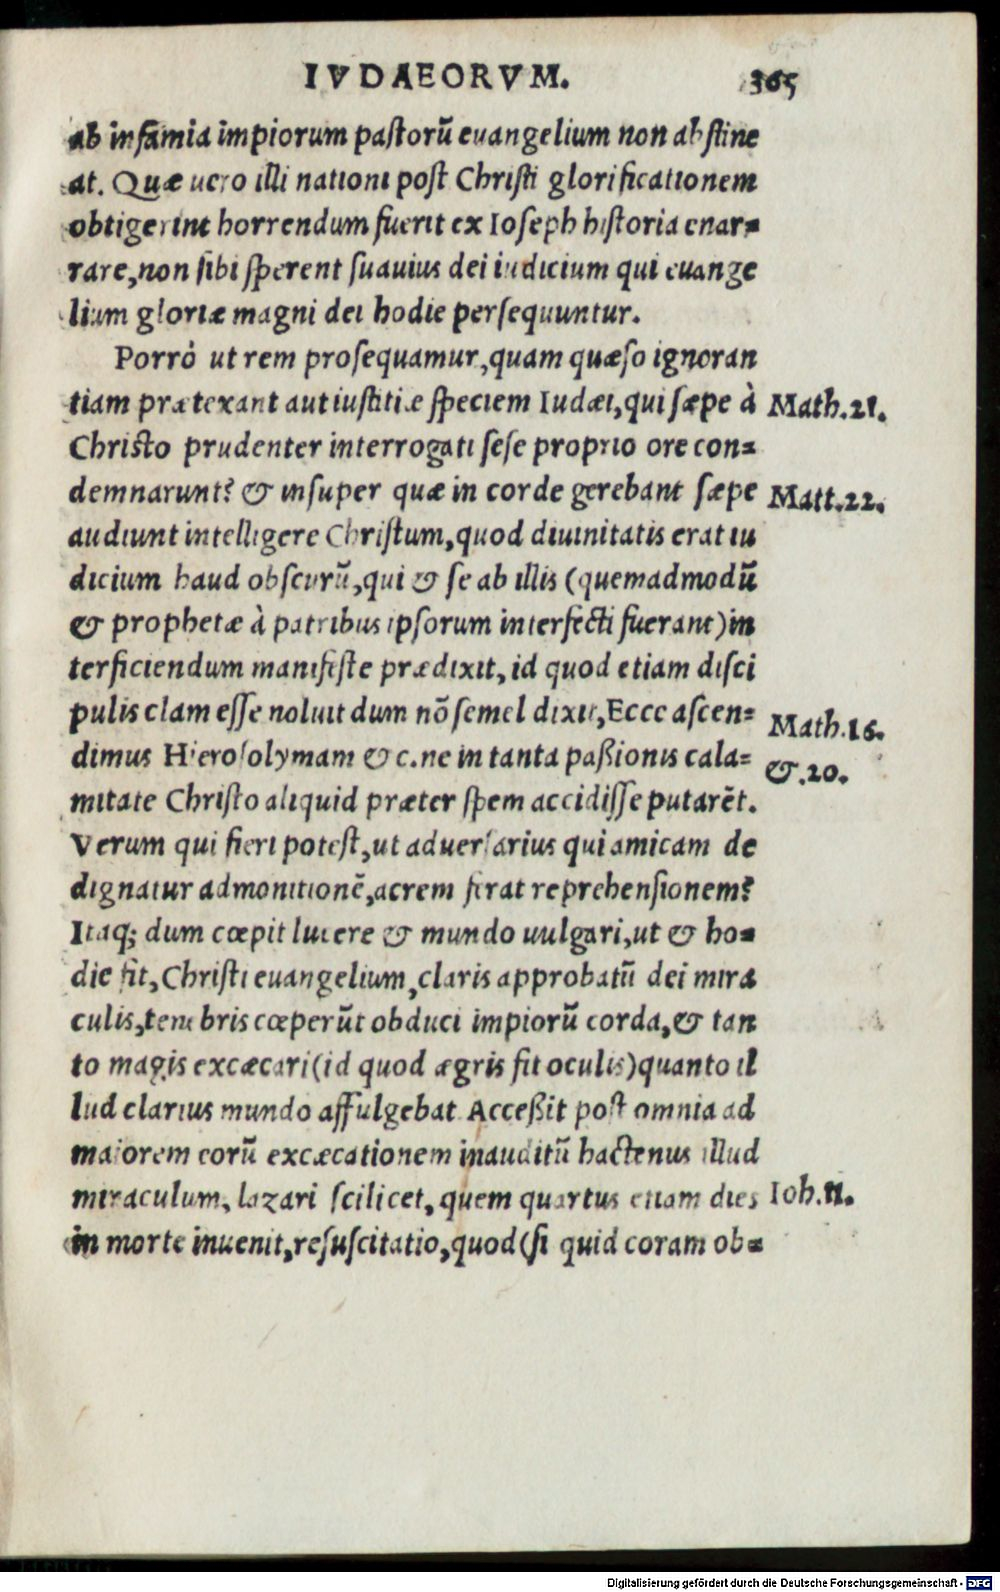 IVDAEORVM. 365
ab infamia impiorum pastorũ evangelium non abstine
at. Quæ uero illi nationi post Christi glorificationem
obtigerint horrendum fuerit ex Ioseph historia enar=
rare, non sibi sperent suauius dei iudicium qui evange
lium gloriæ magni dei hodie persequuntur.
Porrò ut rem prosequamur, quam quæso ignoran
tiam prætexant aut iustitiæ speciem Iudæi, qui sæpe à Math.21.
Christo prudenter interrogati sese proprio ore con=
demnarunt? & insuper quæ in corde gerebant sæpe Matt.22.
audiunt intelligere Christum, quod diuinitatis erat iu
dicium haud obscurũ, qui & se ab illis (quemadmodũ
& prophetæ à patribus ipsorum interfecti fuerant) in
terficiendum manifeste prædixit, id quod etiam disci
pulis clam esse noluit dum nõ semel dixit, Ecce ascen= Math.16.
dimus Hierosolymam & c. ne in tanta paßionis cala= &.20.
mitate Christo aliquid præter spem accidisse putarẽt.
Verum qui fieri potest, ut aduersarius qui amicam de
dignatur admonitionẽ, acrem ferat reprehensionem?
Itaq; dum cœpit lucere & mundo uulgari, ut & ho=
die fit, Christi evangelium, claris approbatũ dei mira
culis, tenebris cœperũt obduci impiorũ corda, & tan
to magis excæcari (id quod ægris fit oculis) quanto il
lud clarius mundo affulgebat. Acceßit post omnia ad
maiorem eorũ excæcationem inauditũ hactenus illud
miraculum, lazari scilicet, quem quartus etiam dies Ioh.11.
in morte inuenit, resuscitatio, quod (si quid coram ob=
Digitalisierung gefördert durch die Deutsche Forschungsgemeinschaft - DFG